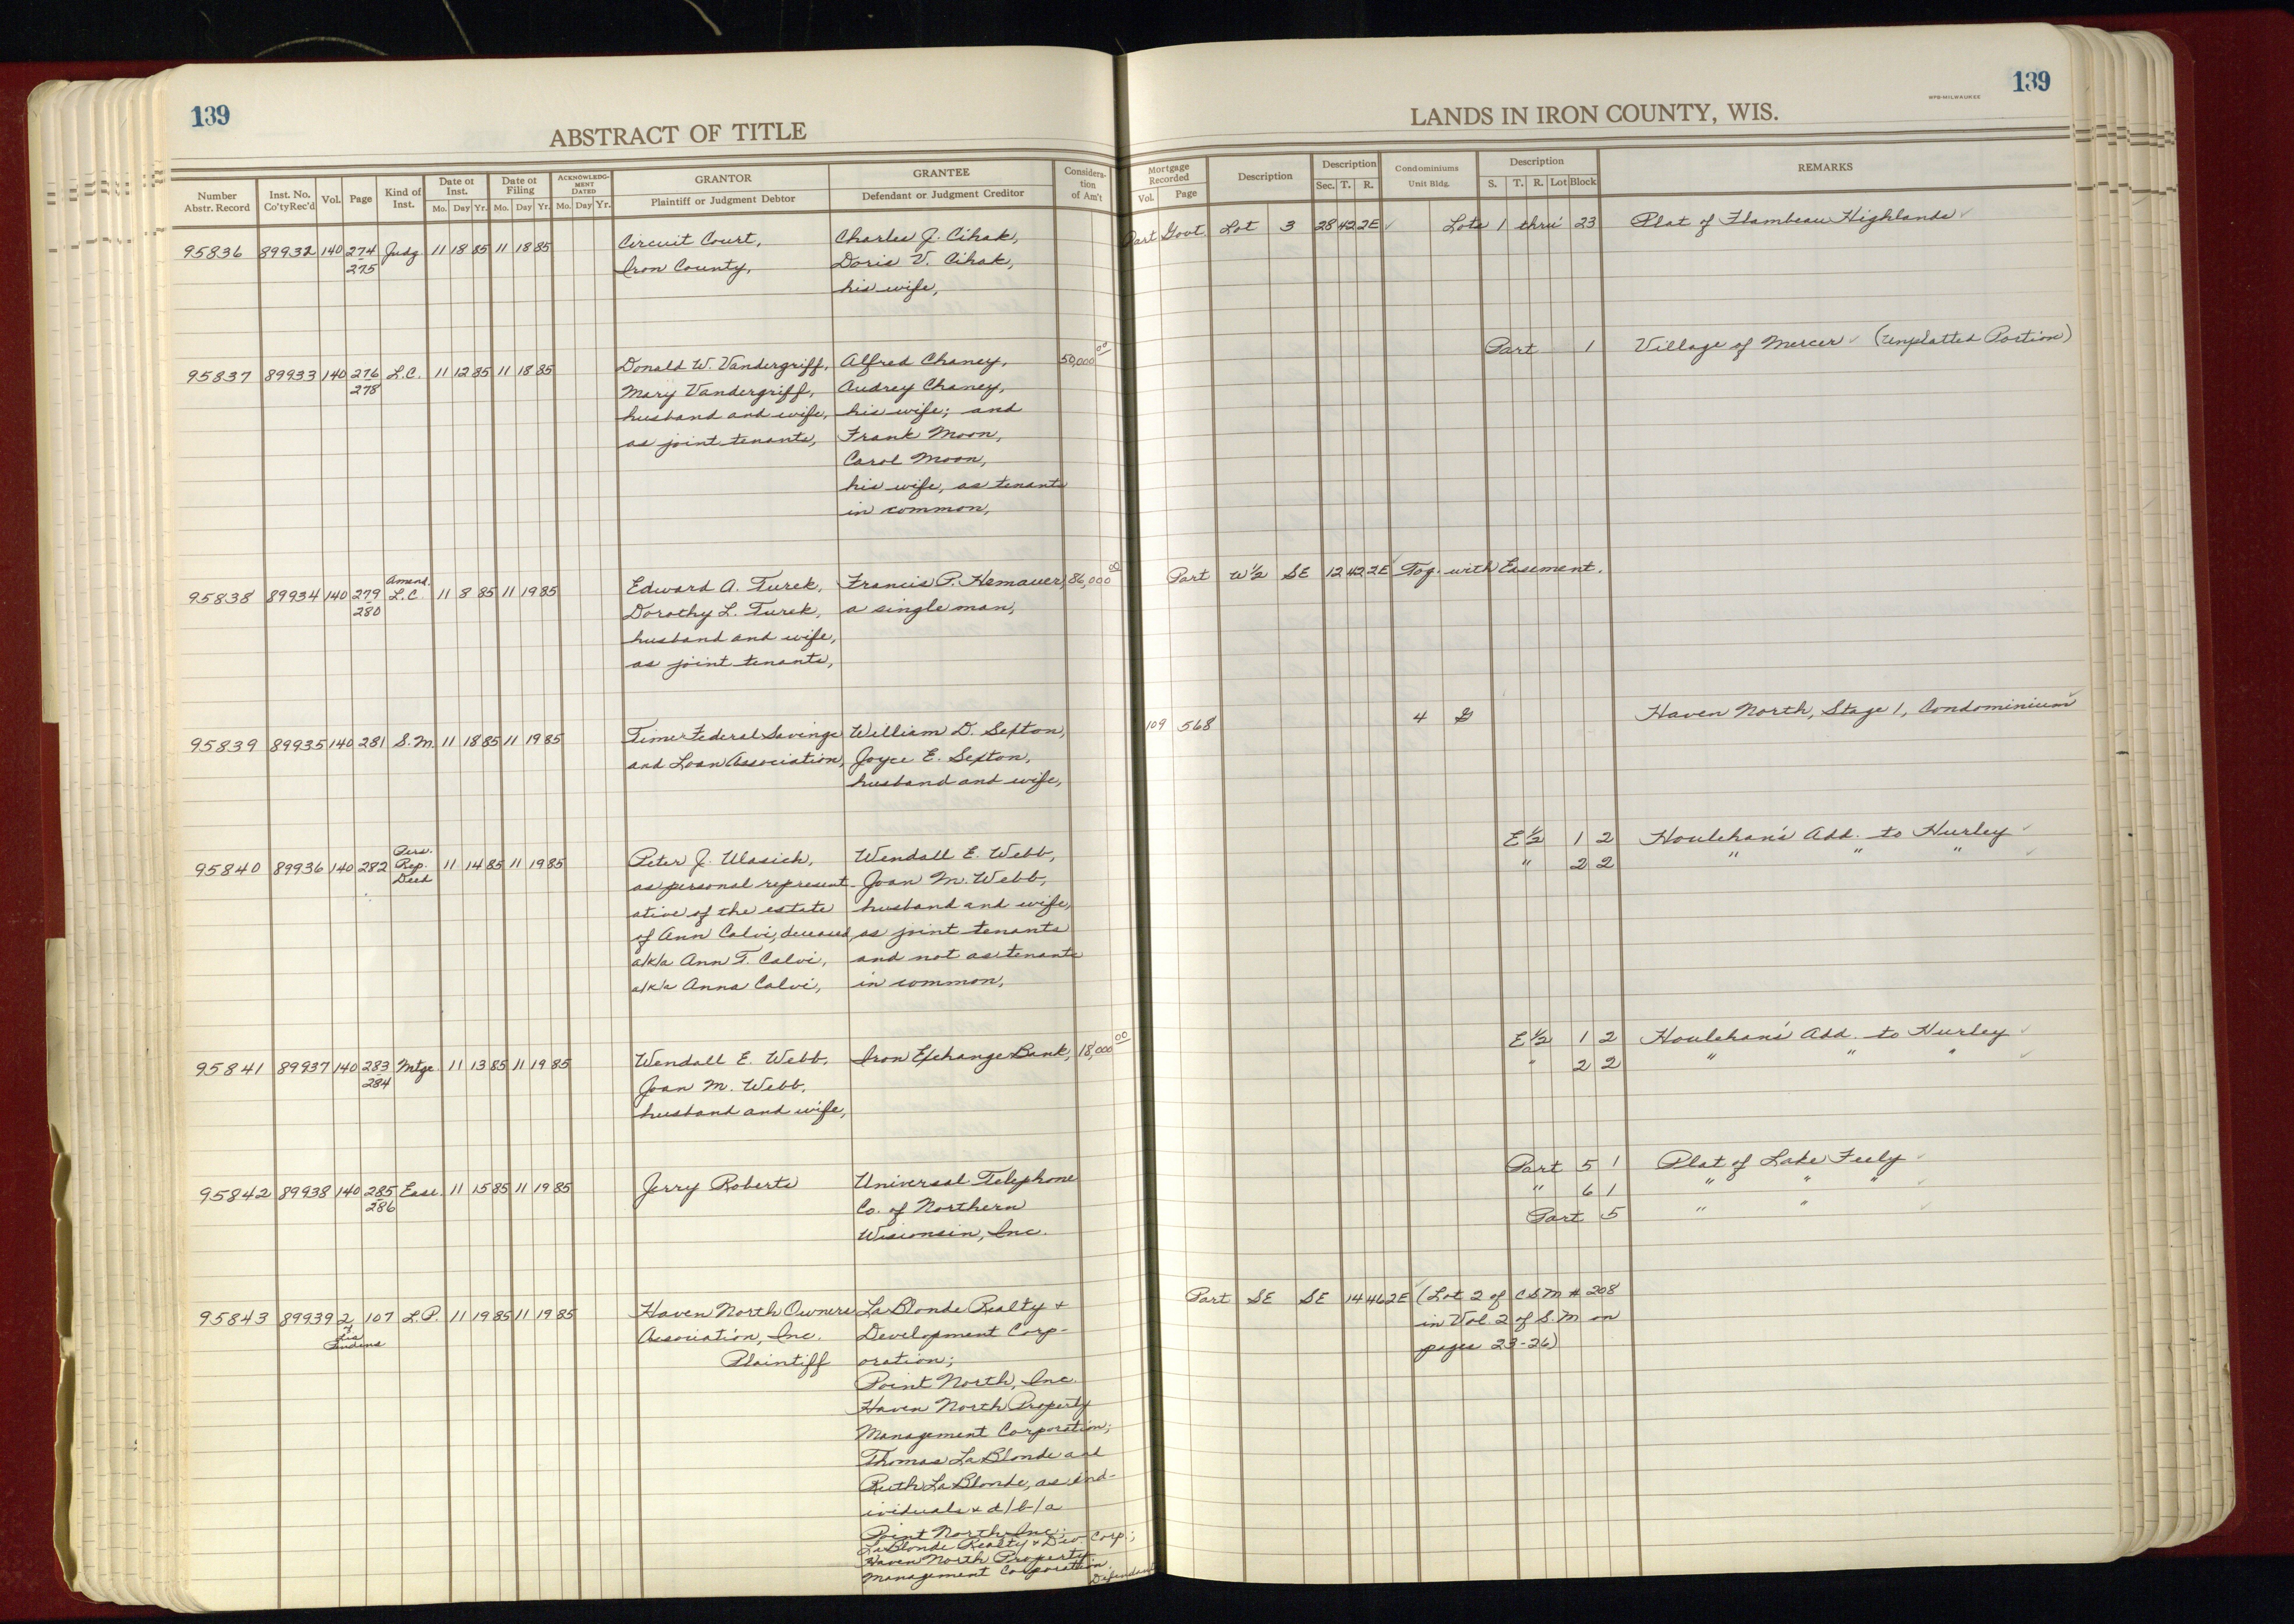 139
ABSTRACT OF TITLE
Number Abstr. Record | Inst. No. Co'ty Rec'd | Vol. | Page | Kind of Inst. | Date of Inst. Mo. Day Yr. | Date of Filing Mo. Day Yr. | ACKNOWLEDGMENT DATED Mo. Day Yr. | GRANTOR Plaintiff or Judgment Debtor | GRANTEE Defendant or Judgment Creditor | Consideration of Am't
95836 89932 140 274 Judg 11 18 85 11 18 85 Circuit Court, Charles J. Cihak,
275 Iron County, Doris V. Cihak,
his wife,
95837 89933 140 276 L.C. 11 12 85 11 18 85 Donald W. Vandergriff, Alfred Chaney, 50,000 00
278 Mary Vandergriff, Audrey Chaney,
husband and wife, his wife; and
as joint tenants, Frank Moon,
Carol Moon,
his wife, as tenants
in common,
95838 89934 140 279 Amend. L.C. 11 8 85 11 19 85 Edward A. Turek, Francis P. Hemauer, 86,000 00
280 Dorothy L. Turek, a single man,
husband and wife,
as joint tenants,
95839 89935 140 281 S.M. 11 18 85 11 19 85 Time Federal Savings William D. Sexton,
and Loan Association, Joyce E. Sexton,
husband and wife,
95840 89936 140 282 Pers. Rep. Deed 11 14 85 11 19 85 Peter J. Ulasich, Wendall E. Webb,
as personal represent- Joan M. Webb,
ative of the estate husband and wife,
of Ann Calvi, deceased, as joint tenants
a/k/a Ann T. Calvi, and not as tenants
a/k/a Anna Calvi, in common,
95841 89937 140 283 Mtge. 11 13 85 11 19 85 Wendall E. Webb, Iron Exchange Bank, 18,000 00
284 Joan M. Webb,
husband and wife,
95842 89938 140 285 Ease. 11 15 85 11 19 85 Jerry Roberts Universal Telephone
286 Co. of Northern
Wisconsin, Inc.
95843 89939 2 107 L.P. 11 19 85 11 19 85 Haven North Owners LaBlonde Realty +
of Lis Pendens Association, Inc. Development Corp-
Plaintiff oration;
Point North, Inc.
Haven North Property
Management Corporation;
Thomas LaBlonde and
Ruth LaBlonde, as ind-
ividuals + d/b/a
Point North Inc;
LaBlonde Realty + Dev. Corp;
Haven North Property
Management Corporation.
Defendants
139
WPB-MILWAUKEE
LANDS IN IRON COUNTY, WIS.
Mortgage Recorded Vol. Page | Description | Description Sec. T. R. | Condominiums Unit Bldg. | Description S. T. R. Lot Block | REMARKS
Part Govt. Lot 3 28 42 2E ✓ Lots 1 thru 23 Plat of Flambeau Highlands ✓
Part 1 Village of Mercer ✓ (Unplatted Portion)
Part W½ SE 12 42 2E ✓ Tog. with Easement.
109 568 4 G Haven North, Stage 1, Condominium ✓
E½ 1 2 Houlehan's Add. to Hurley ✓
" 2 2 " " " ✓
E½ 1 2 Houlehan's Add. to Hurley ✓
" 2 2 " " " ✓
Part 5 1 Plat of Lake Feely ✓
" 6 1 " " " ✓
Part 5 " " ✓
Part SE SE 14 46 2E ✓ (Lot 2 of CSM # 208
in Vol. 2 of S.M on
pages 23-26)